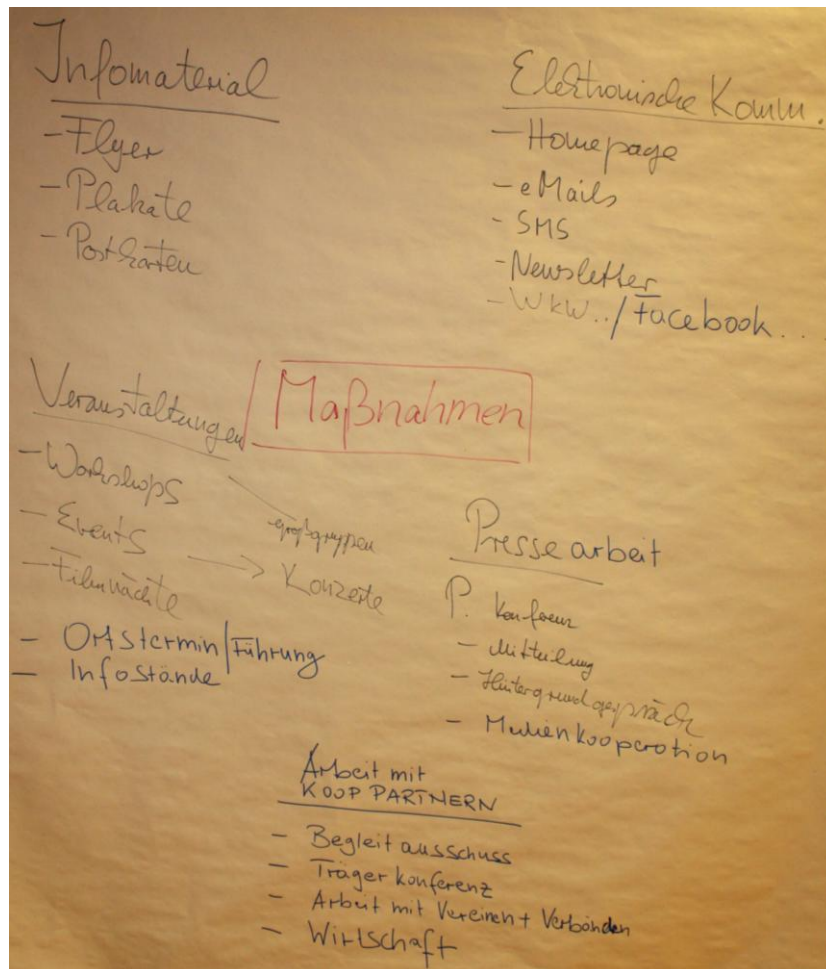 Infomaterial
- Flyer
- Plakate
- Postkarten
Elektronische Komm.
- Homepage
- eMails
- SMS
- Newsletter
- WKW../Facebook...
Maßnahmen
Veranstaltungen
- Workshops
- Großgruppen
- Events → Konzerte
- Filmnächte
- Ortstermin/Führung
- Infostände
Pressearbeit
P. Konferenz
- Mitteilung
- Hintergrundgespräch
- Medienkooperation
Arbeit mit
KOOP PARTNERN
- Begleitausschuss
- Trägerkonferenz
- Arbeit mit Vereinen + Verbänden
- Wirtschaft